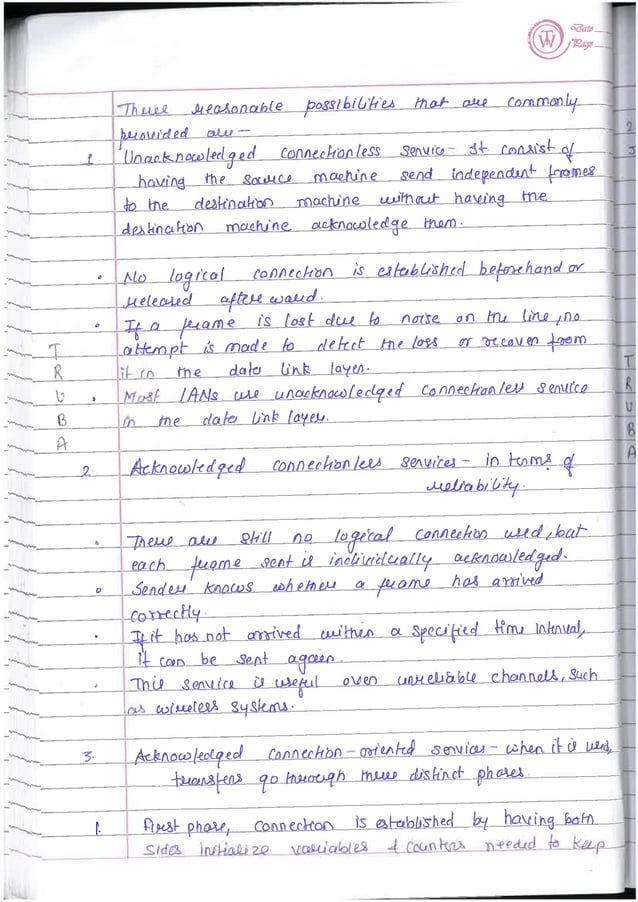 Date
Page
Three reasonable possibilities that are commonly
provided are—
1. Unacknowledged connectionless service- It consist of
having the source machine send independent frames
to the destination machine without having the
destination machine acknowledge them.
• No logical connection is established beforehand or
released afterward.
• If a frame is lost due to noise on the line, no
attempt is made to detect the loss or recover from
it in the data link layer.
• Most LANs use unacknowledged connectionless service
in the data link layer.
T
R
U
B
A
2. Acknowledged connectionless services- in terms of
reliability.
• There are still no logical connection used, but
each frame sent is individually acknowledged.
• Sender knows whether a frame has arrived
correctly.
• If it has not arrived within a specified time interval,
it can be sent again.
• This service is useful over unreliable channels, such
as wireless systems.
3. Acknowledged connection-oriented services- when it is used,
transfers go through three distinct phases.
1. First phase, connection is established by having both
sides initialize variables & counters needed to keep
2
3
T
R
U
B
A